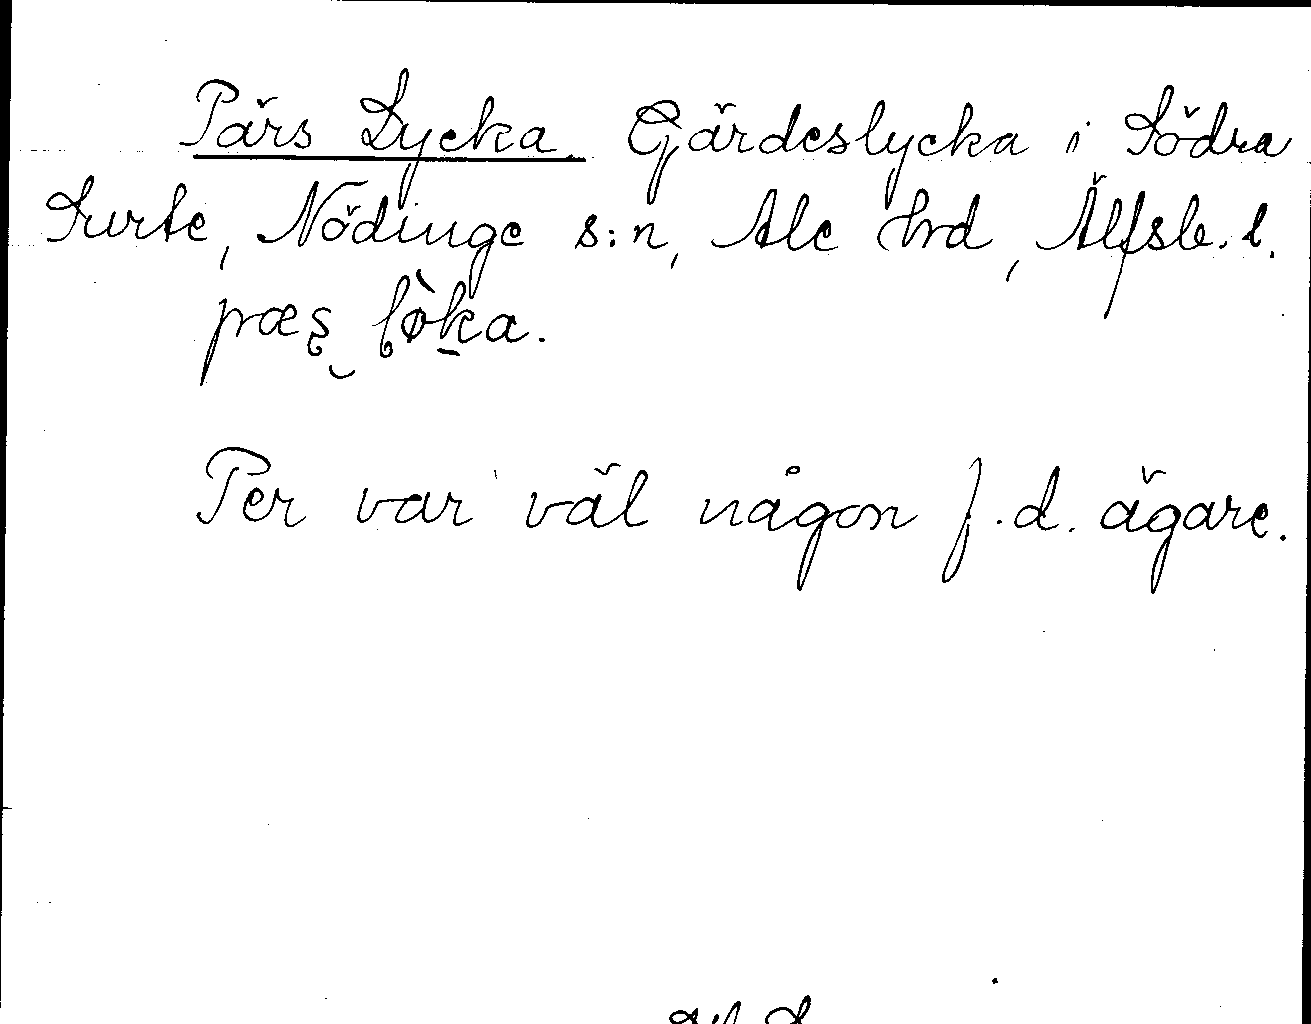 Pärs Lycka Gärdeslycka i Södra
Surte, Nödinge s:n, Ale hrd, Älfsb. l.
præʂ‿ lø̀ka.
Per var väl någon f.d. ägare.